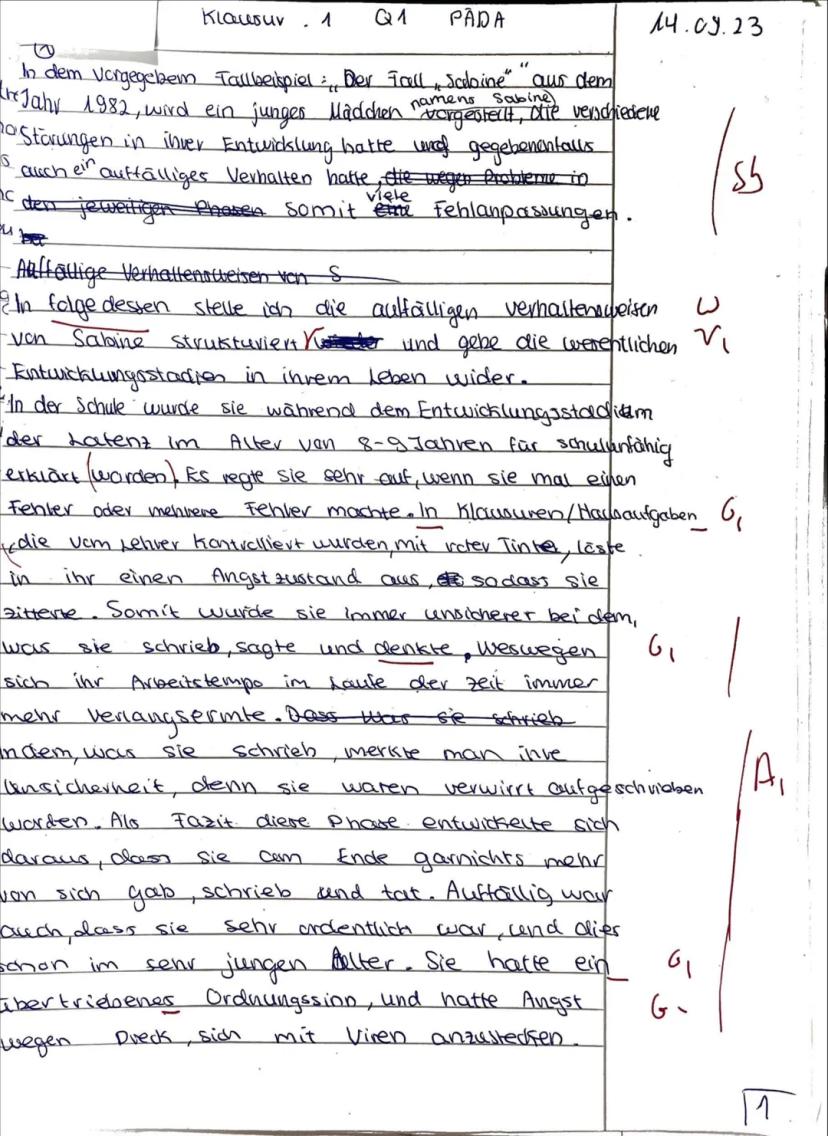 Klausur . 1 Q1 PÄDA 14.09.23
1
In dem vorgegebem Fallbeispiel : „Der Fall „Sabine“ “ aus dem
Jahr 1982, wird ein junges Mädchen namens Sabine vorgestellt, die verschiedene
Störungen in ihrer Entwicklung hatte und gegebenenfalls
auch ein auffälliges Verhalten hatte, die wegen Probleme in
den jeweiligen Phasen somit viele eine Fehlanpassungen.
Sb
Auffällige Verhaltensweisen von S
In folge dessen stelle ich die auffälligen verhaltensweisen W
von Sabine strukturiert und gebe die wesentlichen
Entwicklungsstadien in ihrem Leben wider.
In der Schule wurde sie während dem Entwicklungsstadium
der Latenz im Alter von 8-9 Jahren für schulunfähig
erklärt (worden). Es regte sie sehr auf, wenn sie mal einen
Fehler oder mehrere Fehler machte. In Klausuren/Hausaufgaben G,
die vom Lehrer kontrolliert wurden, mit roter Tinte, löste
in ihr einen Angstzustand aus, sodass sie
zitterte. Somit wurde sie immer unsicherer bei dem,
was sie schrieb, sagte und denkte, weswegen G,
sich ihr Arbeitstempo im Laufe der Zeit immer
mehr verlangsermte. Dass was sie schrieb
Indem, was sie schrieb, merkte man ihre
Unsicherheit, denn sie waren verwirrt aufgeschrieben A,
worden. Als Fazit diese Phase entwickelte sich
daraus, dass sie am Ende garnichts mehr
von sich gab, schrieb und tat. Auffällig war
auch, dass sie sehr ordentlich war, und dies
schon im sehr jungen Alter. Sie hatte ein G,
übertriebenes Ordnungssinn, und hatte Angst G
wegen Dreck, sich mit Viren anzustecken.
1